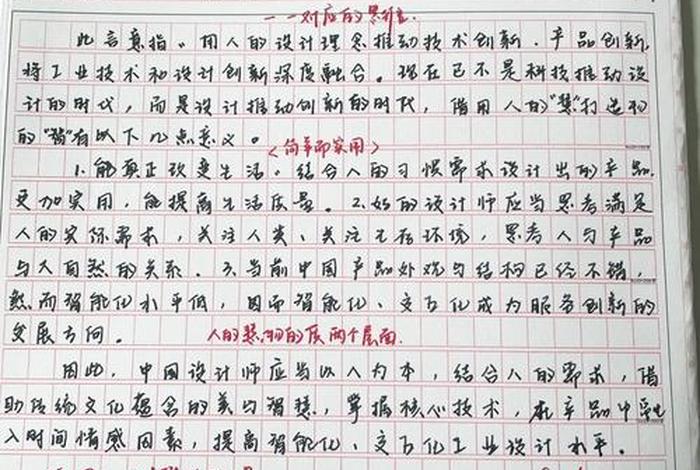 一一对应的思维.
此言意指。用人的设计理念推动技术创新、产品创新,
将工业技术和设计创新深度融合。现在已不是科技推动设
计的时代,而是设计推动创新的时代,借用人的"慧"打造物
的"智"有以下几点意义。
〈简单而实用〉
1.能真正改变生活,结合人的习惯需求设计出的产品,
更加实用,能提高生活质量。2.好的设计师应当思考满足
人的实际需求,关注人类、关注生存环境,思考人与产品
与大自然的关系。3.当前中国产品外观与结构已经不错,
然而智能化水平低,因而智能化、交互化成为服务创新的
发展方向。
人的慧,物的质两个层面.
因此,中国设计师应当以人为本,结合人的需求,借
助传统文化蕴含的美与智慧,掌握核心技术,在产品中融
入时间情感因素,提高智能化、交互化工业设计水平。